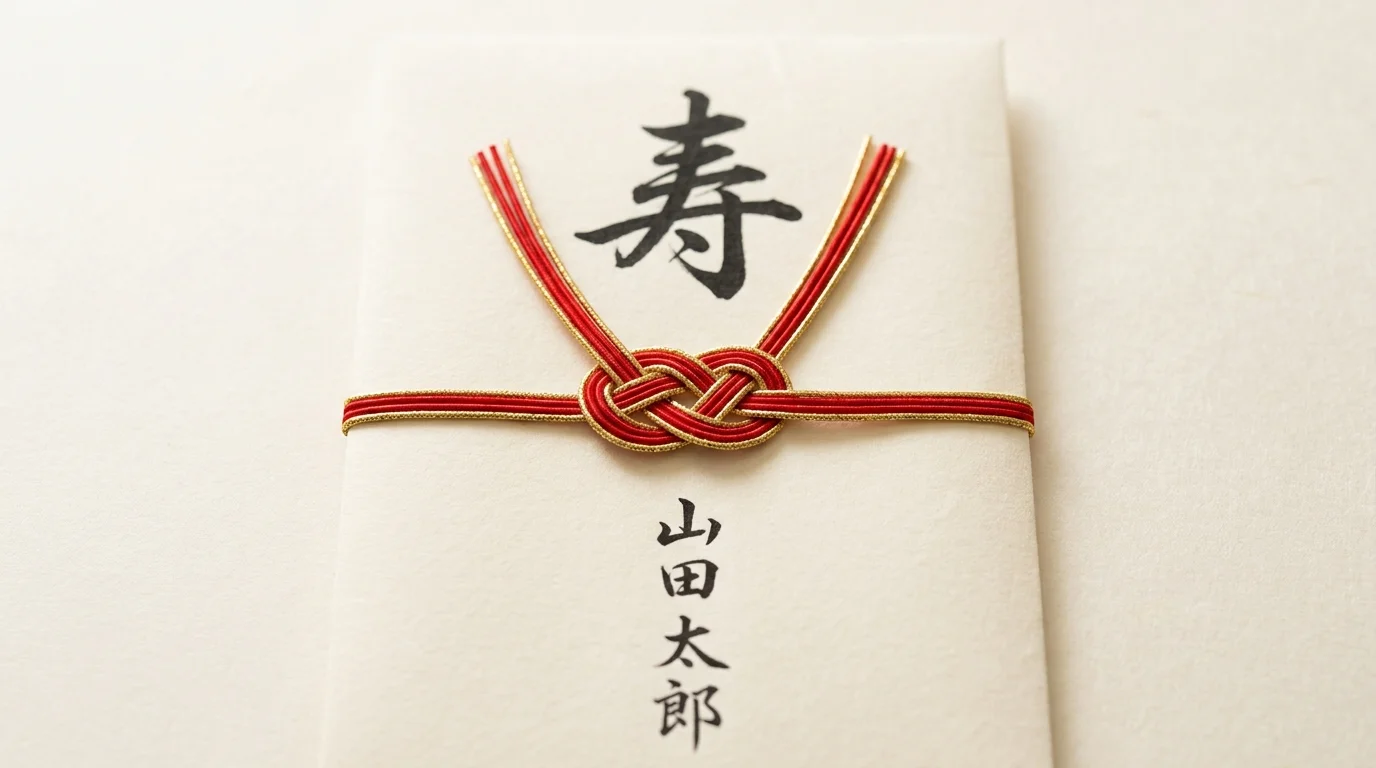 寿
山田太郎